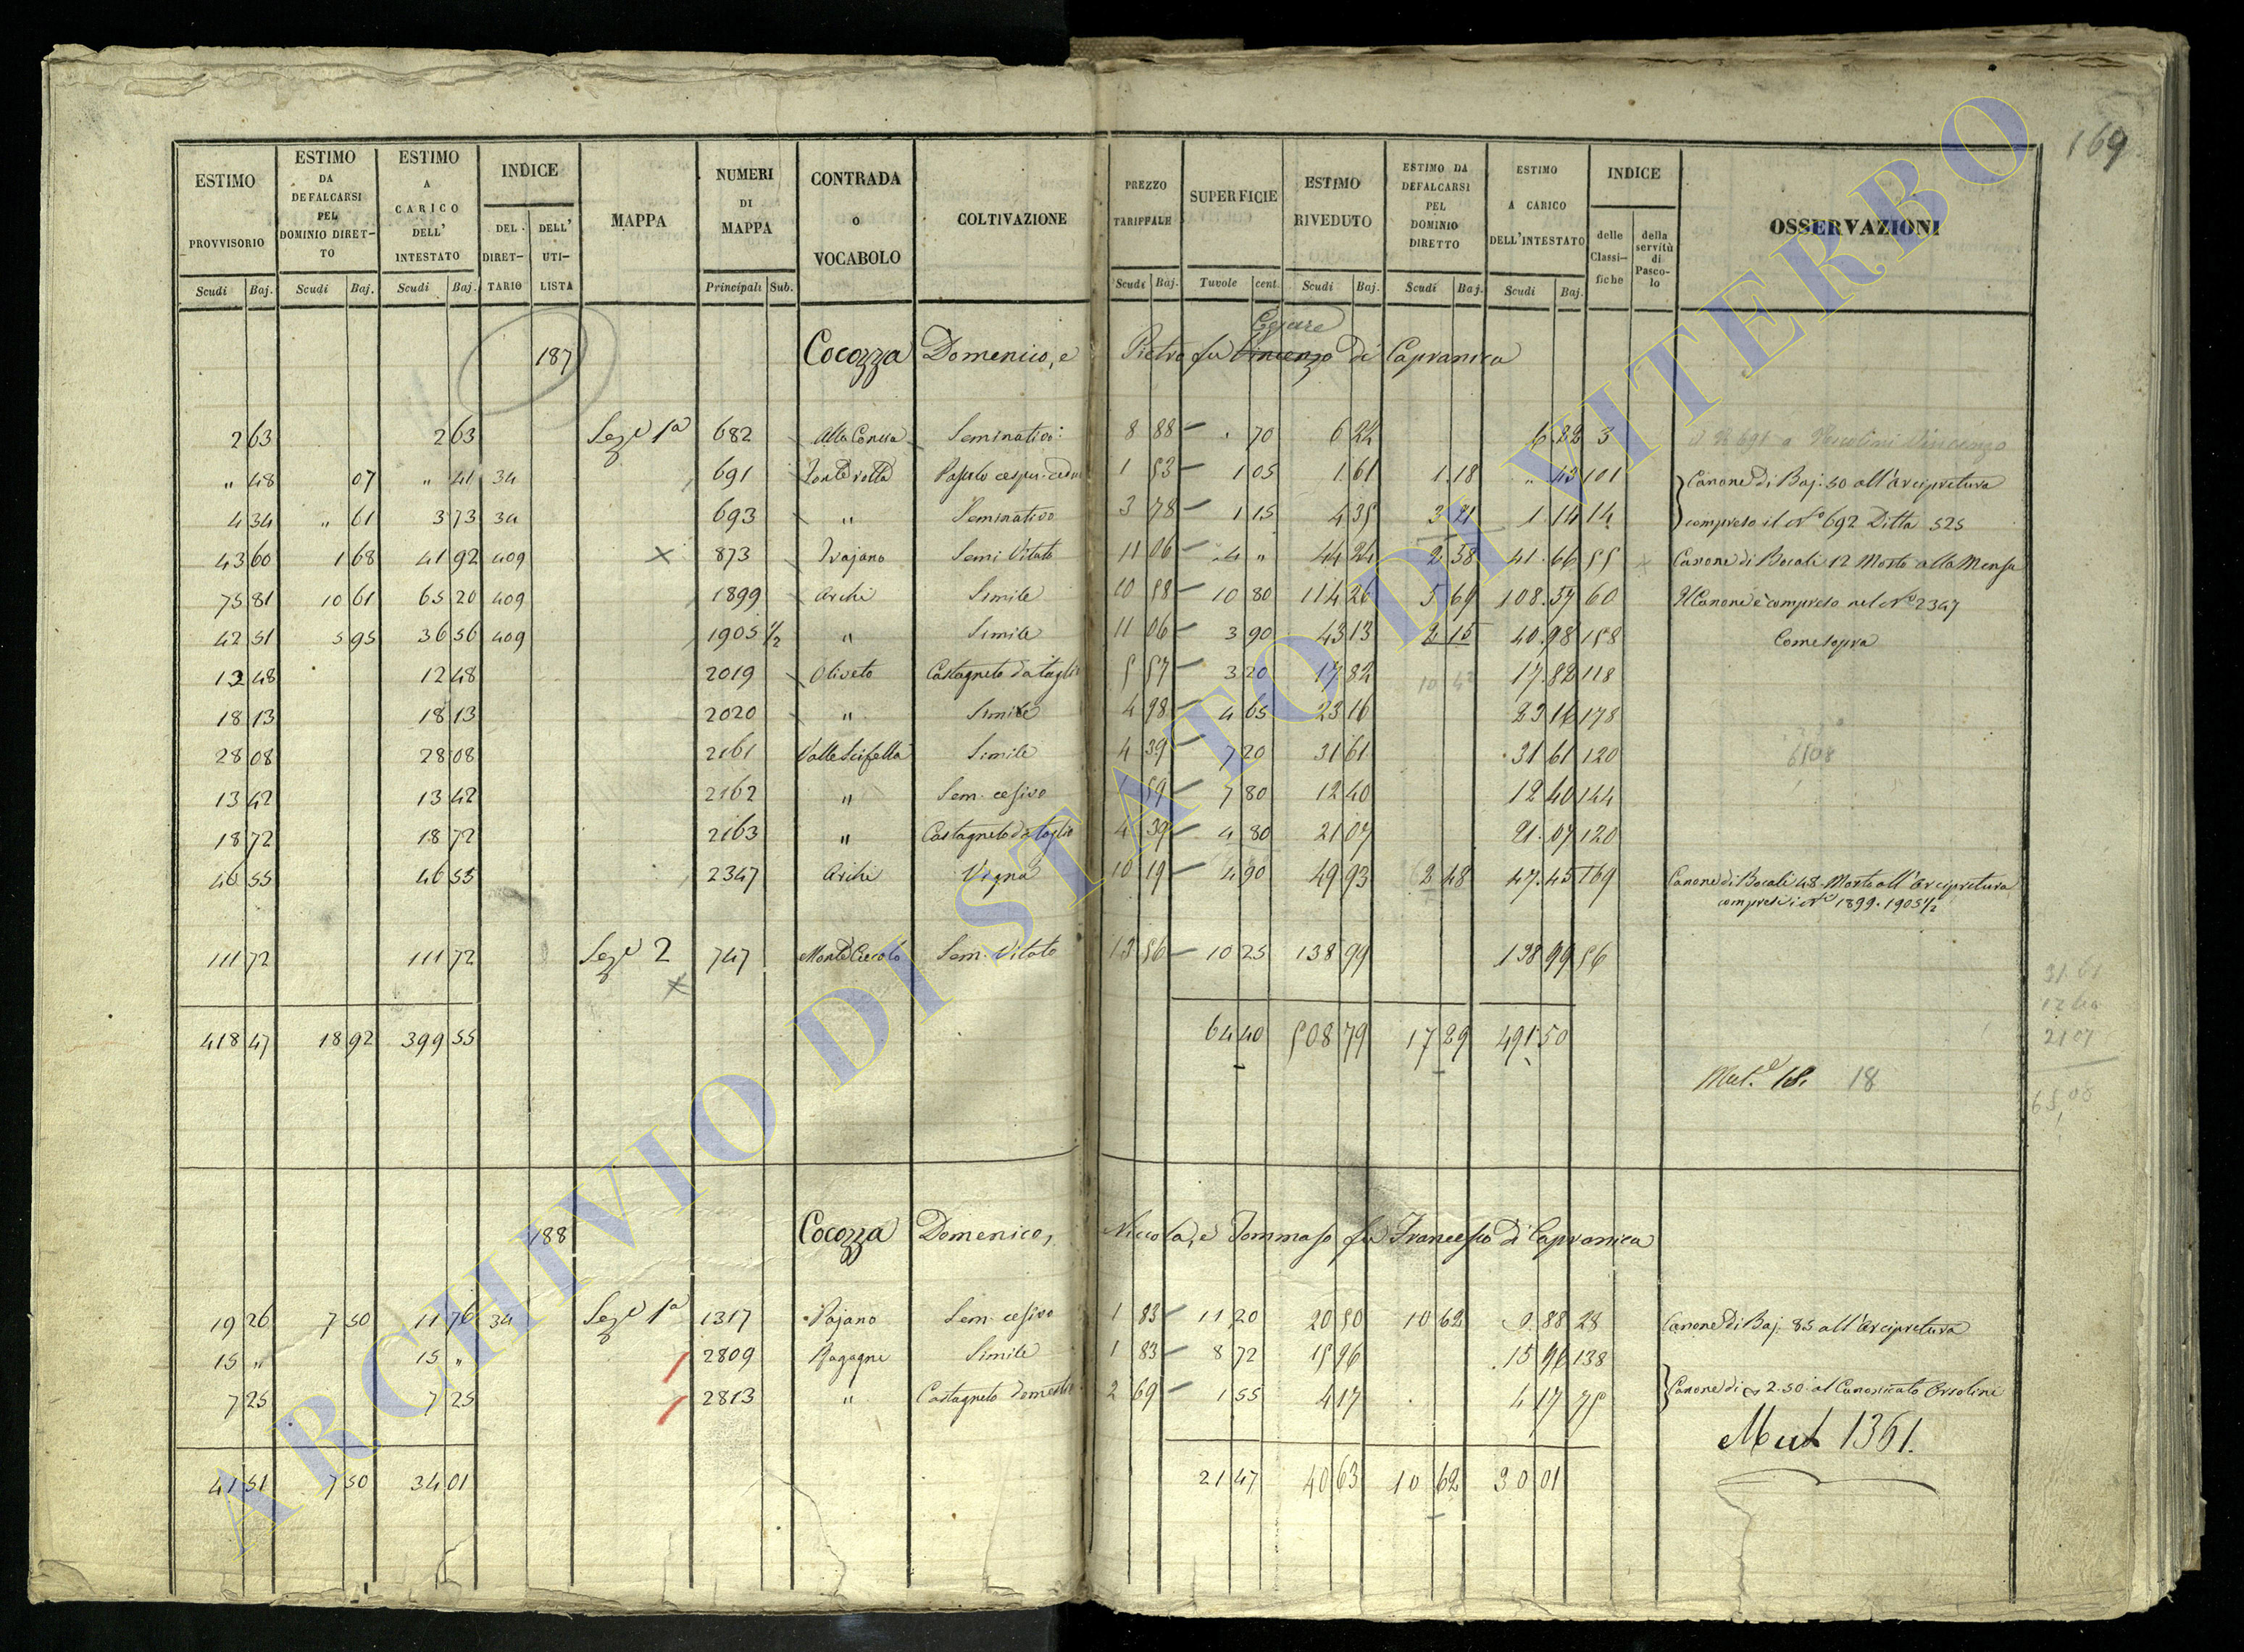 169
ESTIMO PROVVISORIO Scudi Baj.
ESTIMO DA DEFALCARSI PEL DOMINIO DIRETTO Scudi Baj.
ESTIMO A CARICO DELL' INTESTATO Scudi Baj.
INDICE DEL DIRETTARIO DELL' UTILISTA
MAPPA
NUMERI DI MAPPA Principali Sub.
CONTRADA O VOCABOLO
COLTIVAZIONE
PREZZO TARIFFALE Scudi Baj.
SUPERFICIE Tavole cent.
ESTIMO RIVEDUTO Scudi Baj.
ESTIMO DA DEFALCARSI PEL DOMINIO DIRETTO Scudi Baj.
ESTIMO A CARICO DELL'INTESTATO Scudi Baj.
INDICE delle Classifiche della servitù di Pascolo
OSSERVAZIONI
Cesare
187 Cocozza Domenico, e Pietro fu Vincenzo di Capranica
2 63 2 63 Sez.e 1a 682 Alla Concia Seminativo 8 88 70 6 22 6 22 3
" 48 07 " 41 34 691 1 53 1 05 1 61 1 18 " 43 101 Canone di Baj: 50 all'Arcipretura
4 34 " 61 3 73 34 693 " Seminativo 3 78 1 15 4 35 3 21 1 14 14 compreso il N.o 692 Ditta 525
43 60 1 68 41 92 409 873 Trajano Semi Vitato 11 06 4 " 44 24 2 58 41 66 55 Canone di Bocali 12 Mosto alla Mensa
75 81 10 61 65 20 409 1899 Archi Simile 10 58 10 80 114 26 5 69 108 57 60 Il Canone è compreso nel N.o 2347
42 51 5 95 36 56 409 1905 1/2 " Simile 11 06 3 90 43 13 2 15 40 98 158 Come sopra
12 48 12 48 2019 Oliveto Castagneto da taglio 5 57 3 20 17 82 17 82 118
18 13 18 13 2020 " Simile 4 98 4 65 23 16 23 16 178
28 08 28 08 2161 Valle Scifella Simile 4 39 7 20 31 61 31 61 120
13 42 13 42 2162 " Sem. cesivo 1 59 7 80 12 40 12 40 144
18 72 18 72 2163 " Castagneto da taglio 4 39 4 80 21 07 21 07 120
46 55 46 55 2347 Archi Vigna 10 19 4 90 49 93 2 48 47 45 169 Canone di Bocali 48 Mosto all'Arcipretura
compresi i N.i 1899. 1905 1/2
111 72 111 72 Sez.e 2 747 Sem. Vitato 13 56 10 25 138 99 138 99 56
418 47 18 92 399 55 64 40 508 79 17 29 491 50
31 61
12 40
21 07
65,08
Mut.e 18. 18
188 Cocozza Domenico, Niccola, e Tommaso fu Francesco di Capranica
19 26 7 50 11 76 34 Sez.e 1a 1317 Pajano Sem. cesivo 1 83 11 20 20 50 10 62 9 88 28 Canone di Baj. 85 all'Arcipretura
15 " 15 " 2809 Simile 1 83 8 72 15 96 15 96 138
7 25 7 25 2813 " Castagneto domestico 2 69 1 55 4 17 4 17 75 Canone di 2.50 al Canonicato Orsolini
Mut 1361.
41 51 7 50 34 01 21 47 40 63 10 62 30 01
ARCHIVIO DI STATO DI VITERBO